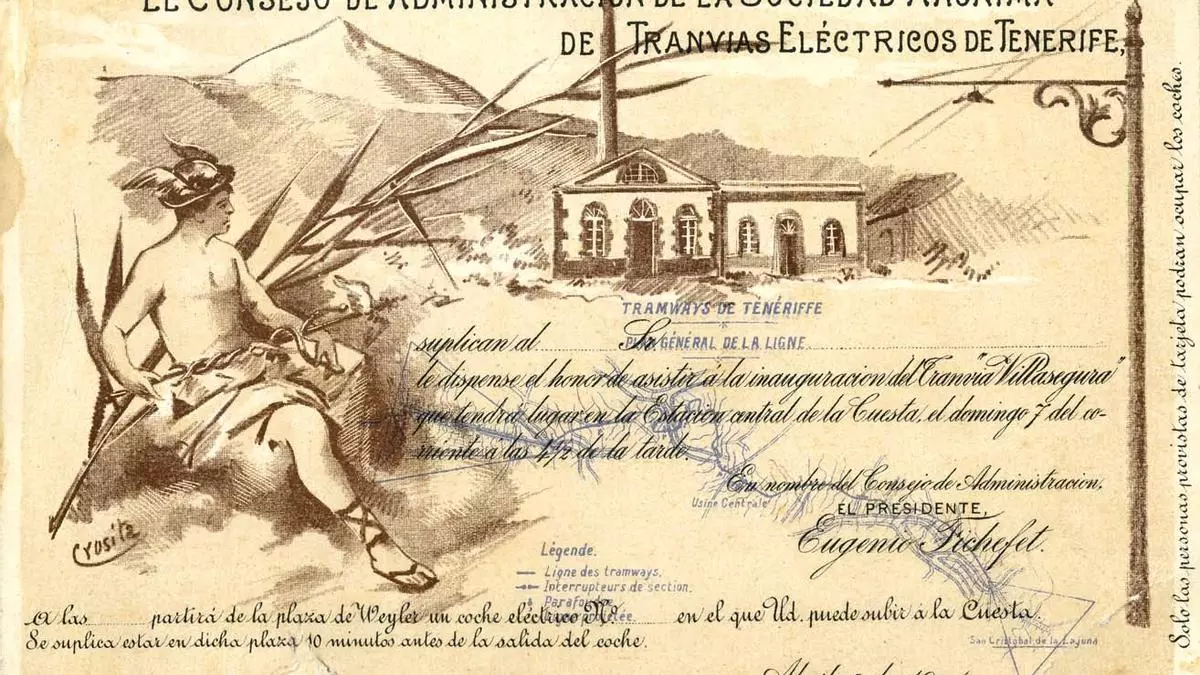 EL CONSEJO DE ADMINISTRACION DE LA SOCIEDAD ANONIMA
DE TRANVIAS ELÉCTRICOS DE TENERIFE,
TRAMWAYS DE TÉNÉRIFFE
suplican al Sr.
PLAN GÉNÉRAL DE LA LIGNE
le dispense el honor de asistir á la inauguracion del Tranvia "Villasegura"
que tendrá lugar en la Estación central de la Cuesta, el domingo 7 del co-
rriente a las 4½ de la tarde.
En nombre del Consejo de Administracion,
Usine Centrale
EL PRESIDENTE,
Eugenio Fichefet.
Crosita
Légende.
Ligne des tramways.
Interrupteurs de section.
A las partirá de la plaza de Weyler un coche eléctrico Nº en el que Ud. puede subir á la Cuesta.
Se suplica estar en dicha plaza 10 minutos antes de la salida del coche.
San Cristobal de la Laguna
Solo las personas provistas de tarjeta podian ocupar los coches.